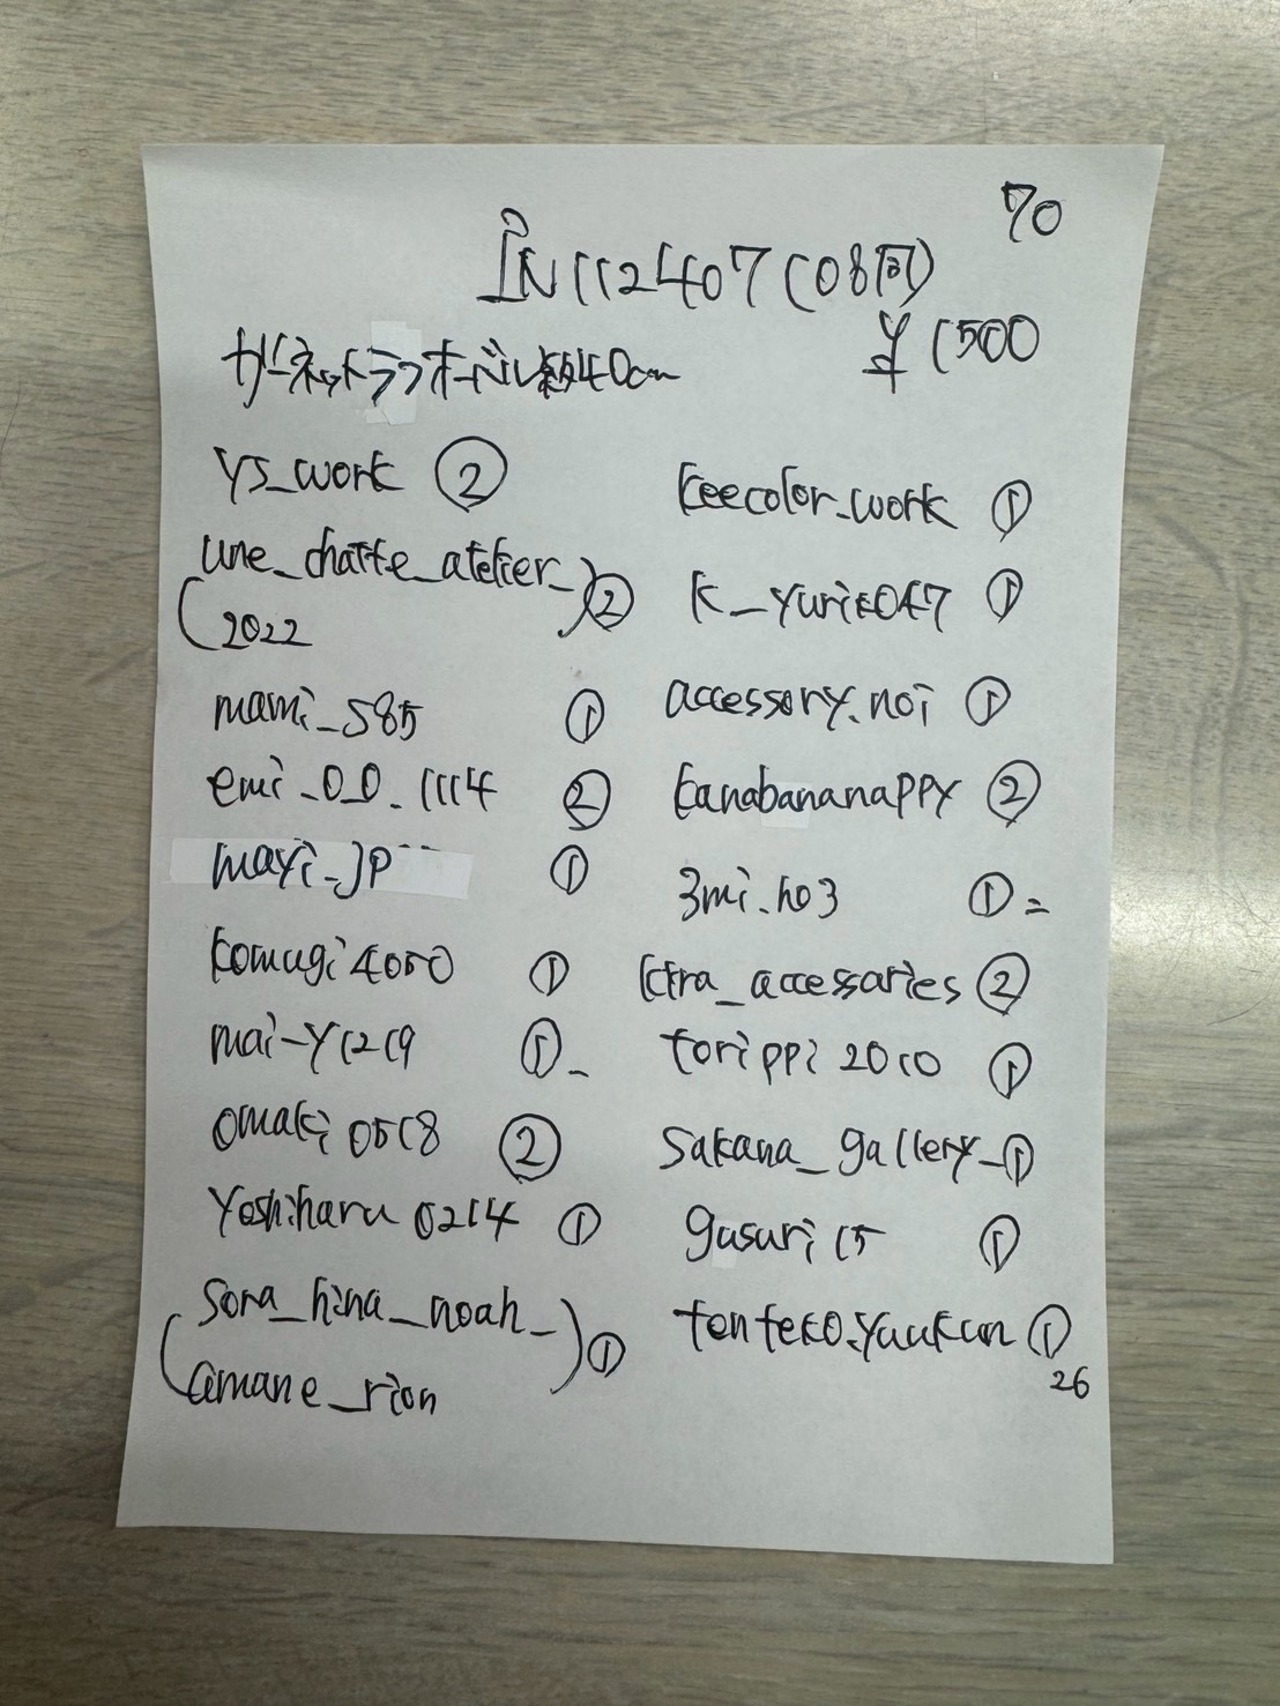 70
IN112407(08同)
¥1500
ガーネットラフオーバル級40cm
ys_work ②
(une_chatte_atelier_
2022) ②
mami_585 ①
emi_0_0_1114 ②
mayi_jp ①
komugi4050 ①
mai-y1219 ①-
omaki0518 ②
yoshiharu0214 ①
(sora_hina_noah_
amane_rion) ①
keecolor_work ①
k_yurik047 ①
accessory.noi ①
kanabananappy ②
3mi.ho3 ①=
ktra_accessaries ②
torippi2010 ①
sakana_gallery_①
gusuri15 ①
tenteko.yuukun ①
26